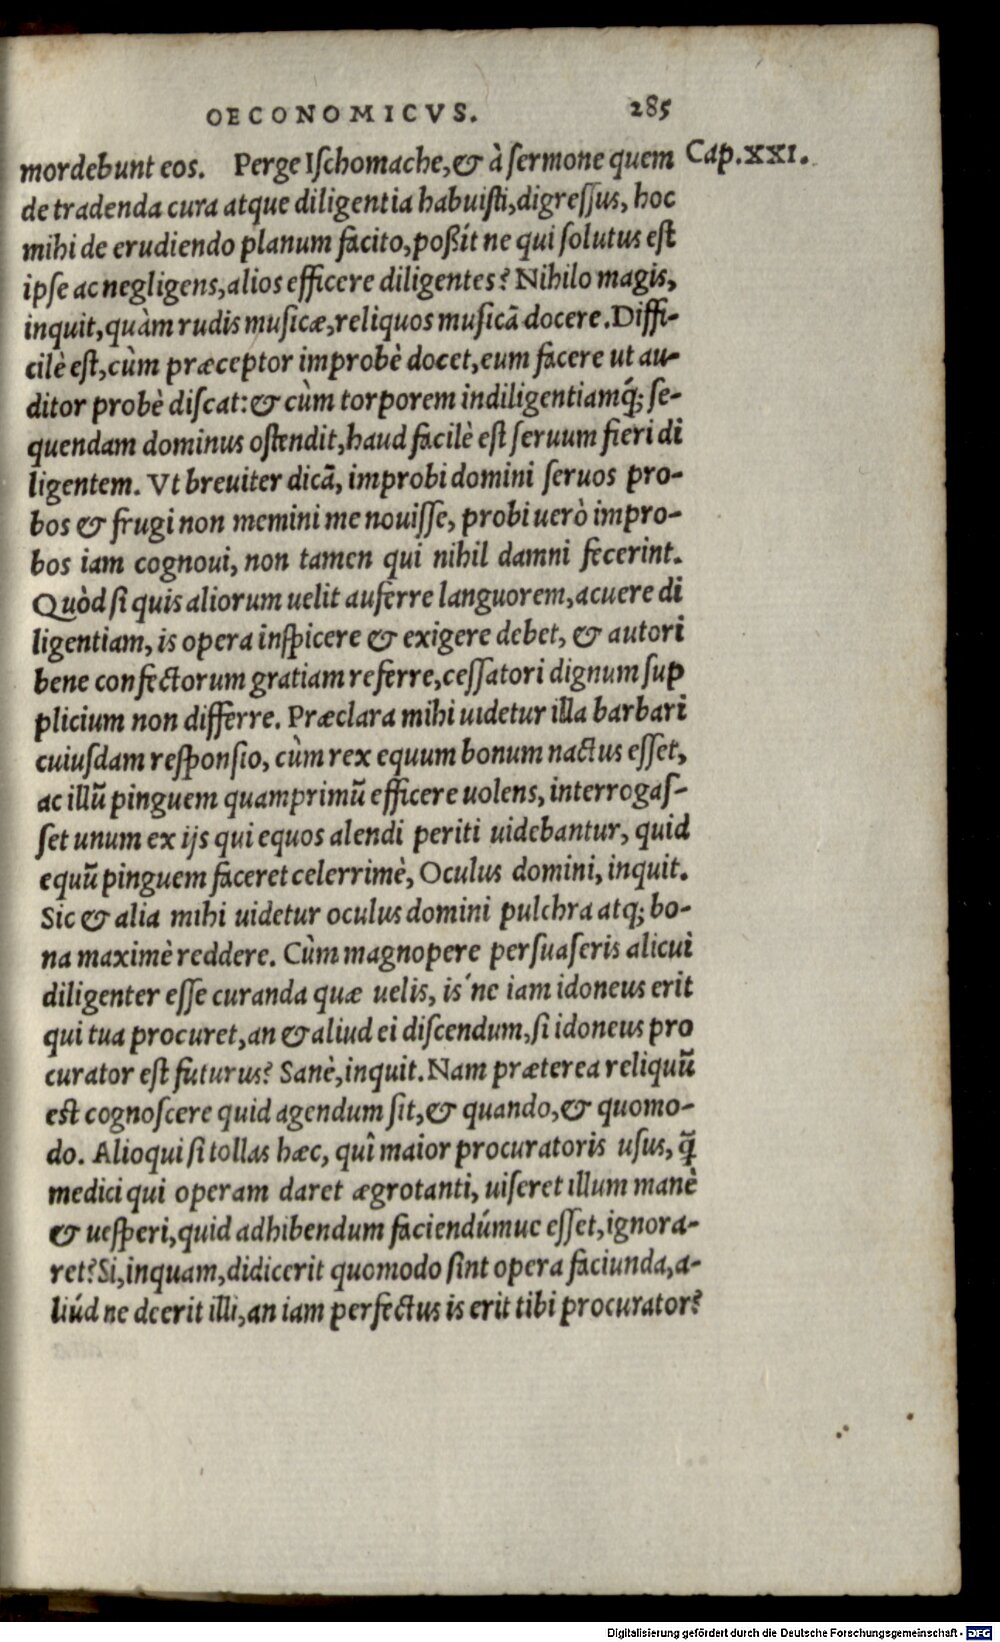 OECONOMICVS. 285
mordebunt eos. Perge Iſchomache,& à ſermone quem Cap.XXI.
de tradenda cura atque diligentia habuiſti,digreſſus, hoc
mihi de erudiendo planum facito,poßít ne qui ſolutus eſt
ipſe ac negligens,alios efficere diligentes? Nihilo magis,
inquit,quàm rudis muſicæ,reliquos muſicã docere.Diffi-
cilè eſt,cùm præceptor improbè docet,eum facere ut au-
ditor probè diſcat:& cùm torporem indiligentiamq́; ſe-
quendam dominus oſtendit,haud facilè eſt ſeruum fieri di
ligentem. Vt breuiter dicã, improbi domini ſeruos pro-
bos & frugi non memini me nouiſſe, probi uerò impro-
bos iam cognoui, non tamen qui nihil damni fecerint.
Quòd ſi quis aliorum uelit auferre languorem,acuere di
ligentiam, is opera inſpicere & exigere debet, & autori
bene confectorum gratiam referre,ceſſatori dignum ſup
plicium non differre. Præclara mihi uidetur illa barbari
cuiuſdam reſponſio, cùm rex equum bonum nactus eſſet,
ac illũ pinguem quamprimũ efficere uolens, interrogaſ-
ſet unum ex ijs qui equos alendi periti uidebantur, quid
equũ pinguem faceret celerrimè, Oculus domini, inquit.
Sic & alia mihi uidetur oculus domini pulchra atq; bo-
na maximè reddere. Cùm magnopere perſuaſeris alicui
diligenter eſſe curanda quæ uelis, is ́ne iam idoneus erit
qui tua procuret,an & aliud ei diſcendum,ſi idoneus pro
curator eſt futurus? Sanè,inquit.Nam præterea reliquũ
est cognoſcere quid agendum ſit,& quando,& quomo-
do. Alioqui ſi tollas hæc, quî maior procuratoris uſus, q̃
medici qui operam daret ægrotanti, uiſeret illum manè
& ueſperi,quid adhibendum faciendúmue eſſet,ignora-
ret?Si,inquam,didicerit quomodo ſint opera faciunda,a-
liúd ne deerit illi,an iam perfectus is erit tibi procurator?
Digitalisierung gefördert durch die Deutsche Forschungsgemeinschaft - DFG